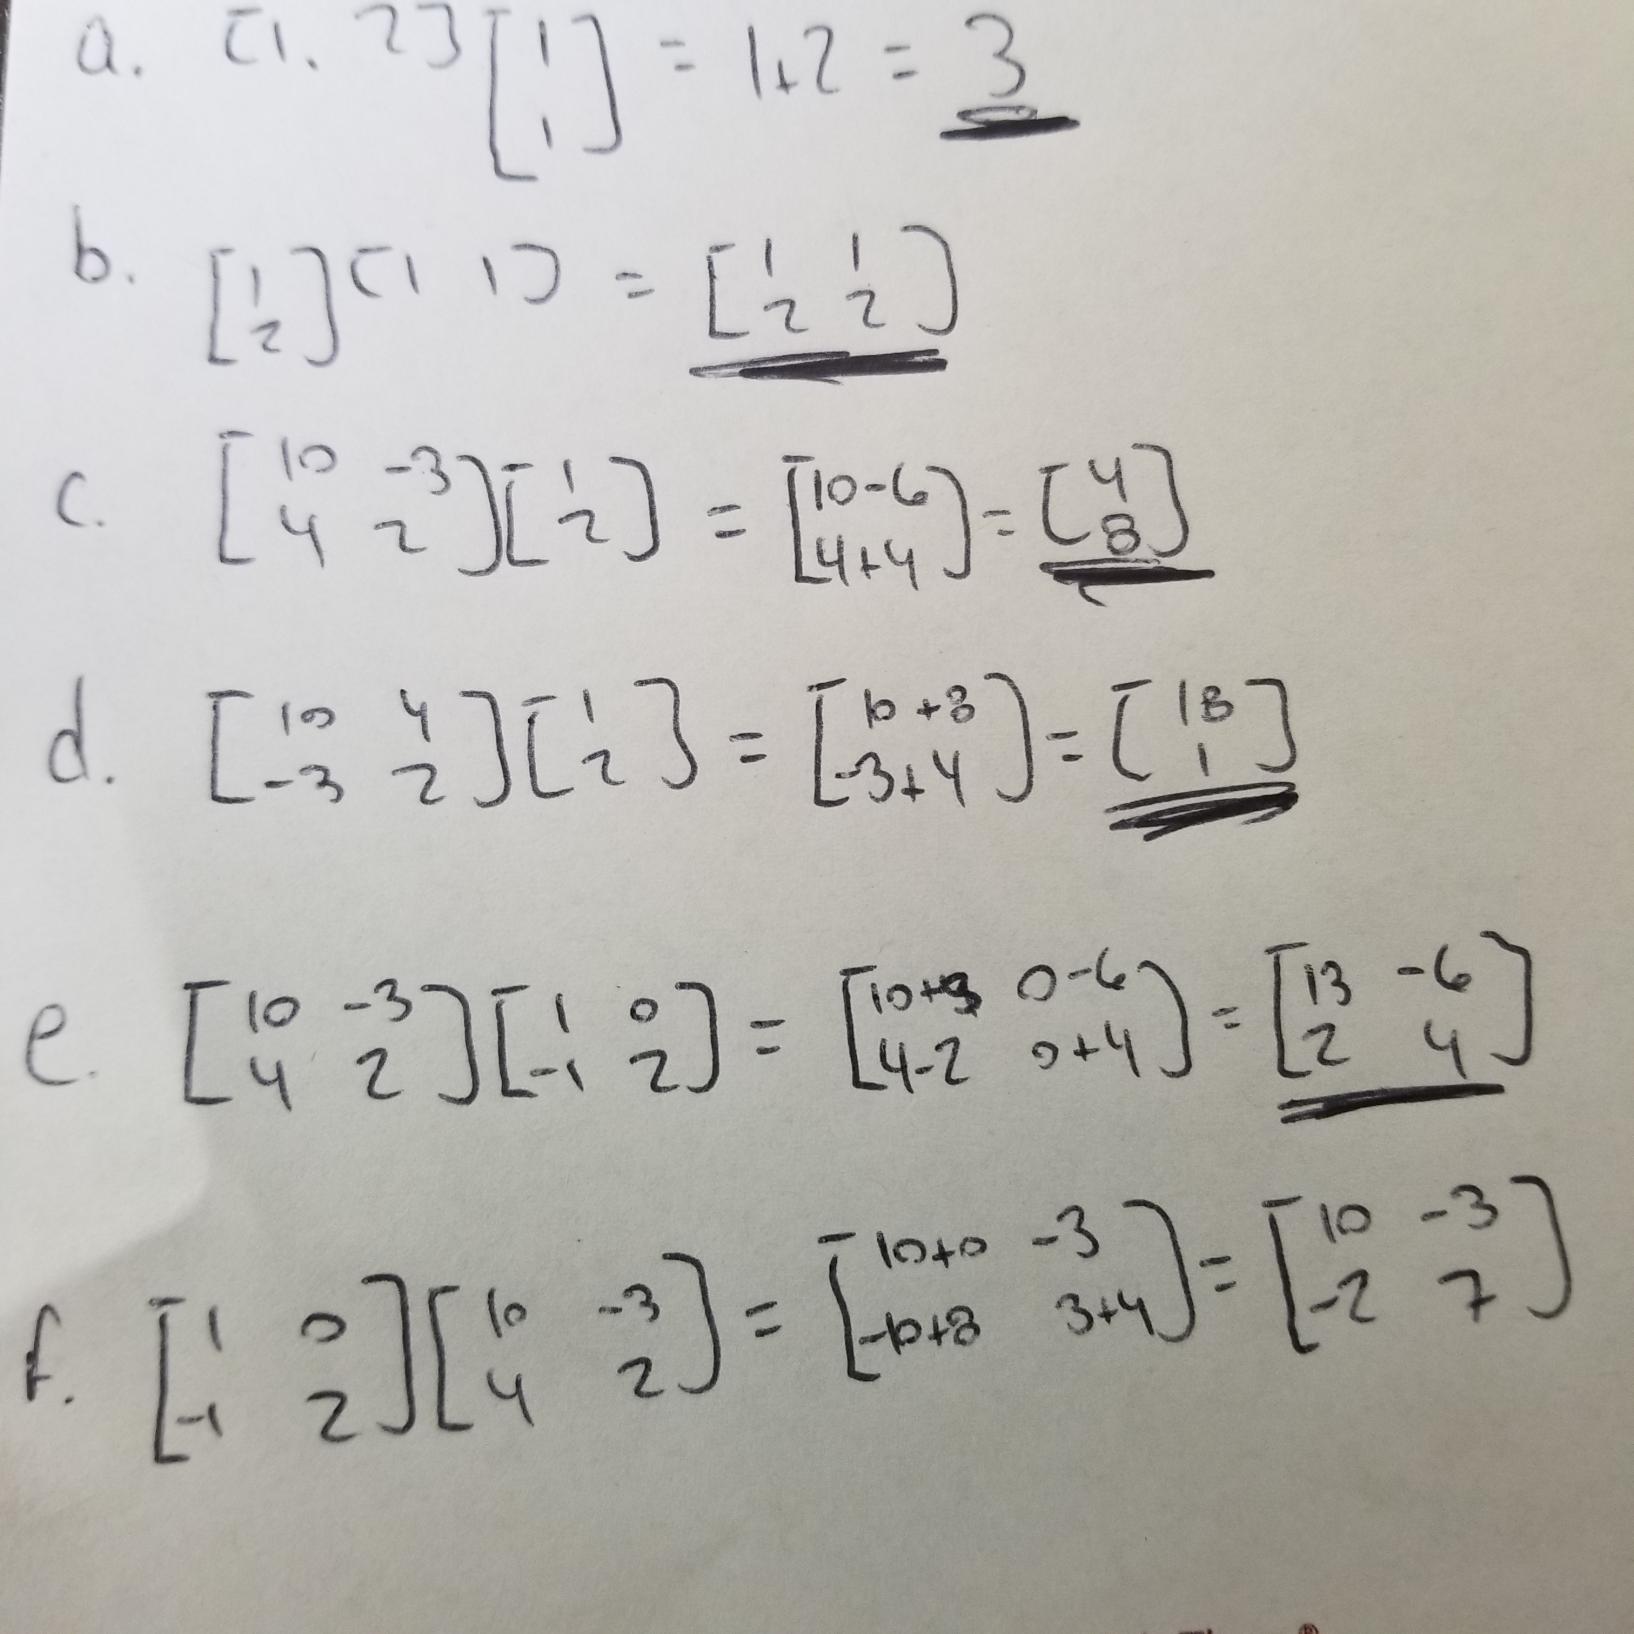 a. [1, 2] [1 1] = 1+2 = 3
b. [1 2] [1 1] = [1 1 2 2]
c. [10 -3 4 2] [1 2] = [10-6 4+4] = [4 8]
d. [10 4 -3 2] [1 2] = [10+8 -3+4] = [18 1]
e. [10 -3 4 2] [1 0 -1 2] = [10+3 0-6 4-2 0+4] = [13 -6 2 4]
f. [1 0 -1 2] [10 -3 4 2] = [10+0 -3 -10+8 3+4] = [10 -3 -2 7]